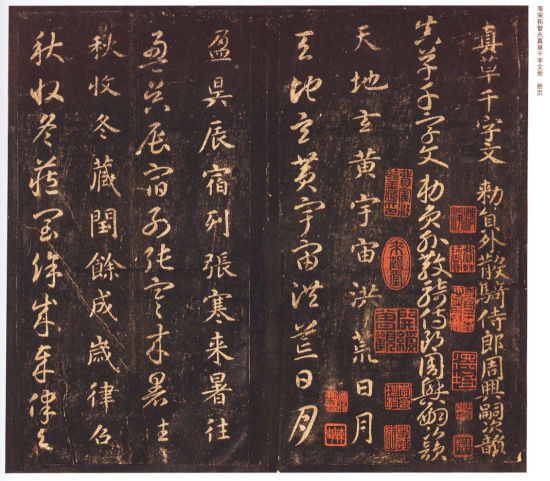 南宋拓智永真草千字文册 册页
真草千字文 勅員外散騎侍郎周興嗣次韻
真草千字文 勅員外散騎侍郎周興嗣次韻
天地玄黄宇宙洪荒日月
天地玄黄宇宙洪荒日月
盈昃辰宿列張寒来暑往
盈昃辰宿列張寒来暑往
秋收冬藏閏餘成歲律召
秋收冬藏閏餘成歲律召